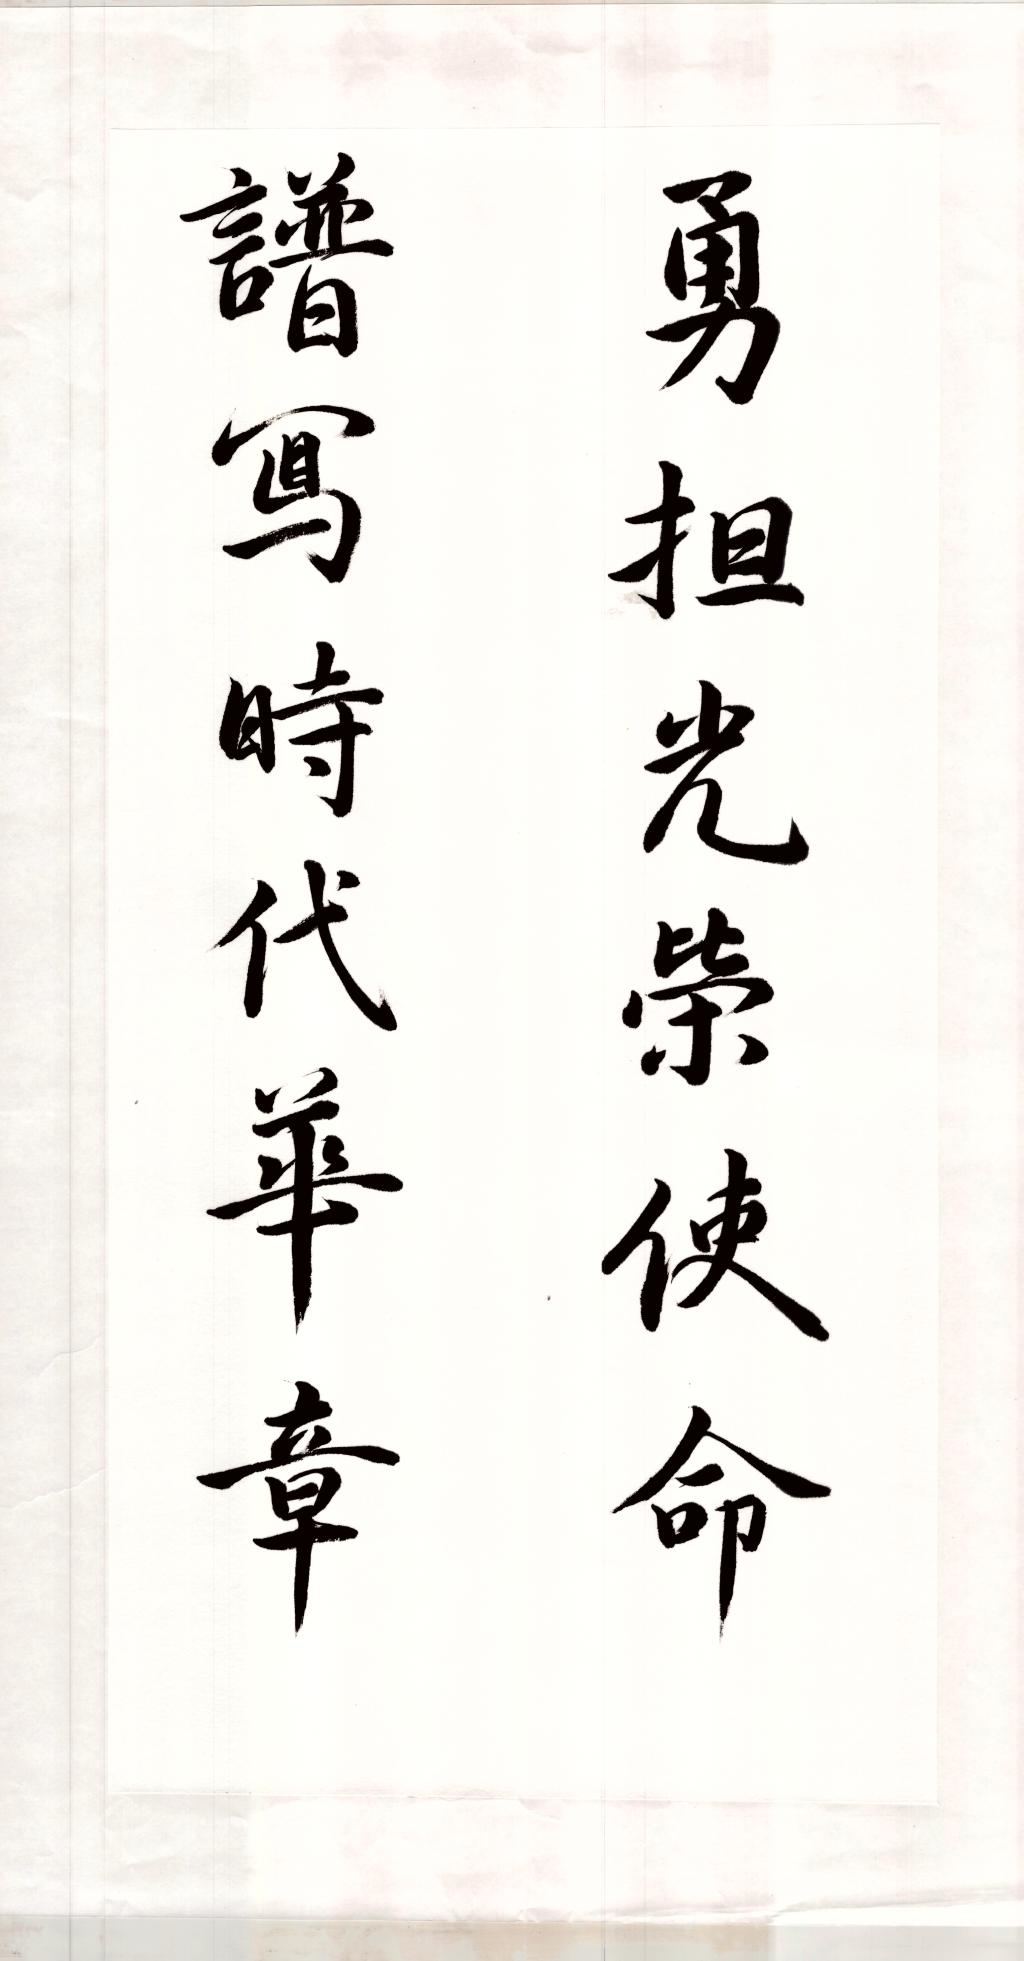 勇担光榮使命
譜寫時代華章